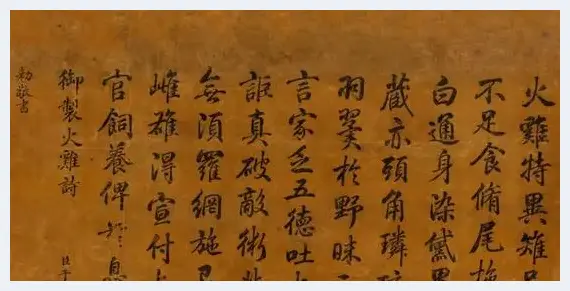 火雞特異雉
不足食脩尾
白通身染黛
藏亦頭角璘
羽翼於野昧
言家乏五德吐
詎真破敵術
無須羅網施
雌雄得宣付
官飼養俾
御製火雞詩
臣
勅敬書